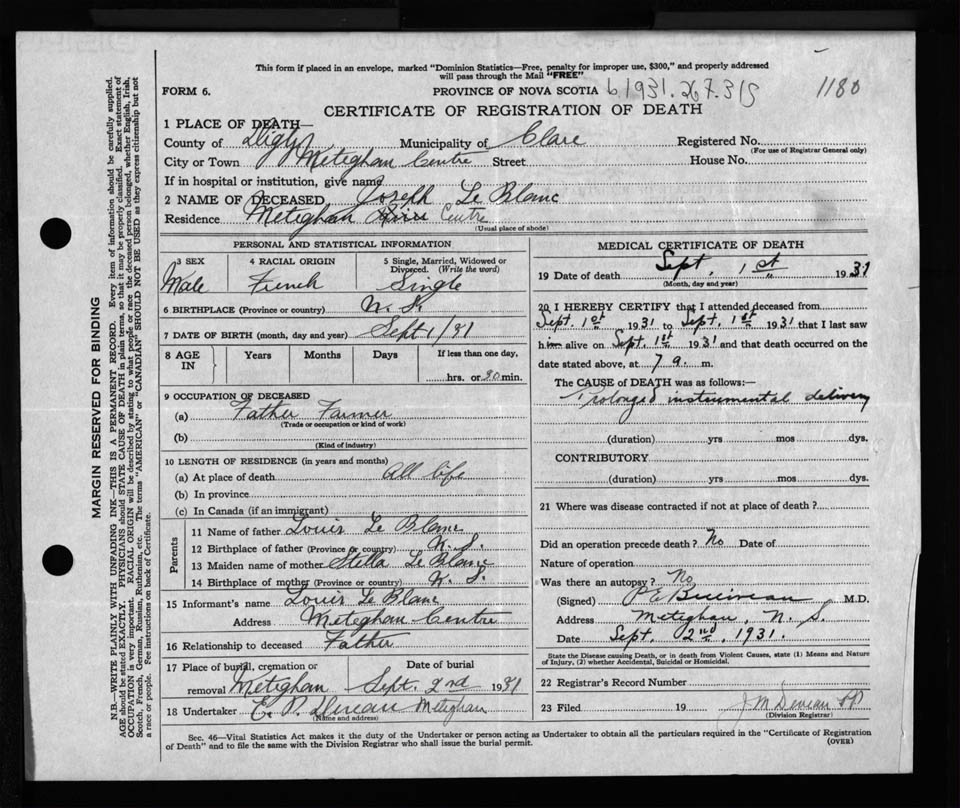 This form if placed in an envelope, marked "Dominion Statistics—Free, penalty for improper use, $300," and properly addressed
will pass through the Mail "FREE"
FORM 6.
PROVINCE OF NOVA SCOTIA b1931.267.315 1180
CERTIFICATE OF REGISTRATION OF DEATH
1 PLACE OF DEATH—
County of Digby Municipality of Clare Registered No.
(For use of Registrar General only)
City or Town Meteghan Centre Street House No.
If in hospital or institution, give name
2 NAME OF DECEASED Joseph Le Blanc
Residence Metighan River Centre
(Usual place of abode)
PERSONAL AND STATISTICAL INFORMATION
3 SEX 4 RACIAL ORIGIN 5 Single, Married, Widowed or
Divorced. (Write the word)
Male French Single
6 BIRTHPLACE (Province or country) N. S.
7 DATE OF BIRTH (month, day and year) Sept 1/31
8 AGE IN Years Months Days If less than one day,
hrs. or 30 min.
9 OCCUPATION OF DECEASED
(a) Father Farmer
(Trade or occupation or kind of work)
(b)
(Kind of industry)
10 LENGTH OF RESIDENCE (in years and months)
(a) At place of death All life
(b) In province
(c) In Canada (if an immigrant)
Parents
11 Name of father Louis Le Blanc
12 Birthplace of father (Province or country) N. S.
13 Maiden name of mother Stella Le Blanc
14 Birthplace of mother (Province or country) N. S.
15 Informant's name Louis Le Blanc
Address Meteghan Centre
16 Relationship to deceased Father
17 Place of burial, cremation or Date of burial
removal Metighan Sept. 2nd 1931
18 Undertaker E. P. Deveau Meteghan
(Name and address)
MEDICAL CERTIFICATE OF DEATH
19 Date of death Sept. 1st 1931
(Month, day and year)
20 I HEREBY CERTIFY that I attended deceased from
Sept. 1st 1931 to Sept. 1st 1931 that I last saw
him alive on Sept. 1st 1931 and that death occurred on the
date stated above, at 7 a. m.
The CAUSE of DEATH was as follows:—
Prolonged instrumental delivery
(duration) yrs mos dys.
CONTRIBUTORY
(duration) yrs mos dys.
21 Where was disease contracted if not at place of death?
Did an operation precede death? No Date of
Nature of operation
Was there an autopsy? No
(Signed) P E M.D.
Address Meteghan, N. S.
Date Sept. 2nd, 1931.
State the Disease causing Death, or in death from Violent Causes, state (1) Means and Nature
of Injury, (2) whether Accidental, Suicidal or Homicidal.
22 Registrar's Record Number
23 Filed 19 J M Deveau PP
(Division Registrar)
Sec. 46—Vital Statistics Act makes it the duty of the Undertaker or person acting as Undertaker to obtain all the particulars required in the "Certificate of Registration
of Death" and to file the same with the Division Registrar who shall issue the burial permit.
(OVER)
MARGIN RESERVED FOR BINDING
N.B—WRITE PLAINLY WITH UNFADING INK—THIS IS A PERMANENT RECORD. Every item of information should be carefully supplied.
AGE should be stated EXACTLY. PHYSICIANS should STATE CAUSE OF DEATH in plain terms, so that it may be properly classified. Exact statement of
OCCUPATION is very important. RACIAL ORIGIN will be described by stating to what people or race the deceased person belonged, whether English, Irish,
Scotch, French, German, Russian, Ruthenian, etc. The terms "AMERICAN" or "CANADIAN" SHOULD NOT BE USED as they express citizenship but not
a race or people. Fee instructions on back of Certificate.